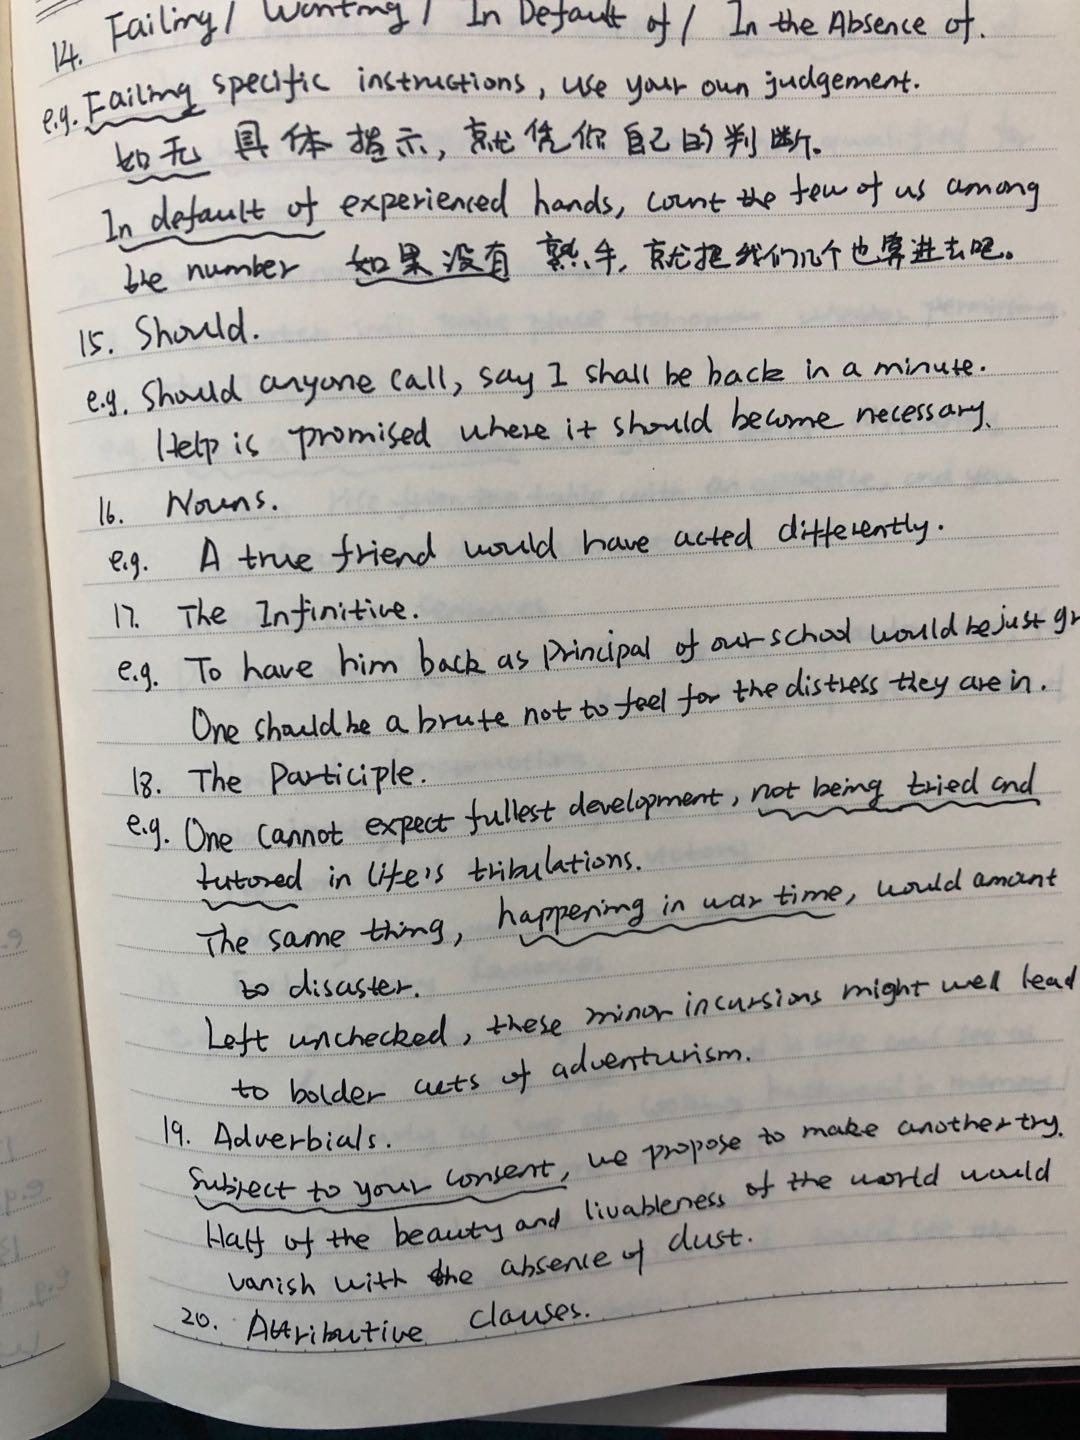 14. Failing / Wanting / In Default of / In the Absence of.
e.g. Failing specific instructions, use your own judgement.
如无 具体指示, 就凭你自己的判断.
In default of experienced hands, count the few of us among
the number 如果没有 熟手, 就把我们几个也算进去吧。
15. Should.
e.g. Should anyone call, say I shall be back in a minute.
Help is promised where it should become necessary.
16. Nouns.
e.g. A true friend would have acted differently.
17. The Infinitive.
e.g. To have him back as Principal of our school would be just gr
One should be a brute not to feel for the distress they are in.
18. The Participle.
e.g. One cannot expect fullest development, not being tried and
tutored in life's tribulations.
The same thing, happening in war time, would amount
to disaster.
Left unchecked, these minor incursions might well lead
to bolder acts of adventurism.
19. Adverbials.
Subject to your consent, we propose to make another try.
Half of the beauty and livableness of the world would
vanish with the absence of dust.
20. Attributive Clauses.